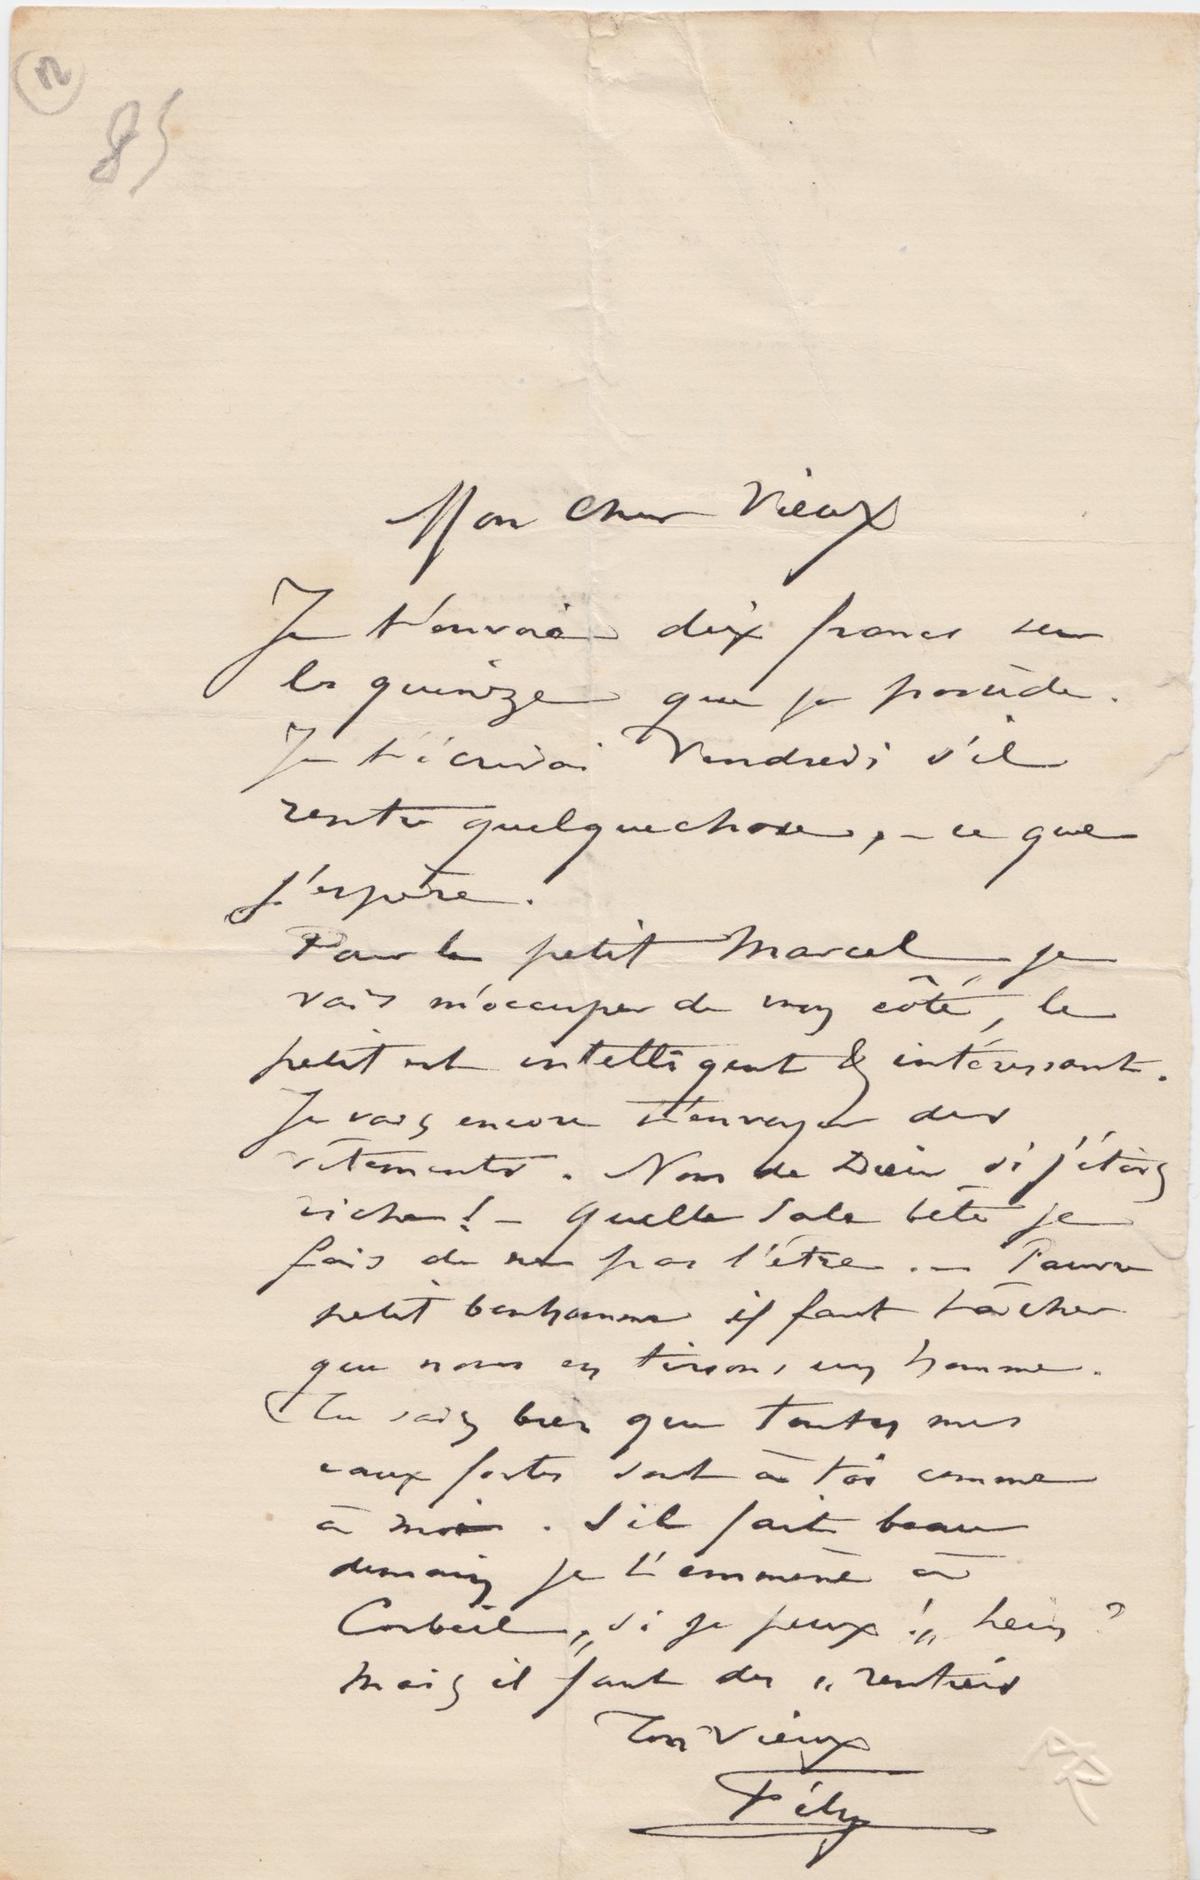 2
85
Mon cher Vieux
Je t'envoie dix francs sur
les quinze que je possède.
Je t'écrirai Vendredi s'il
rentre quelquechose, – ce que
j'espère.
Pour le petit Marcel je
vais m'occuper de mon côté, le
petit est intelligent & intéressant.
Je vais encore t'envoyer des
vêtements. Nom de Dieu si j'étais
riche! – Quelle sale bête je
fais de ne pas l'être. – Pauvre
petit bonhomme il faut tâcher
que nous en tirions un homme.
Tu sais bien que toutes mes
eaux fortes sont à toi comme
à moi. S'il fait beau
demain je t'emmène à
Corbeil „si je peux!„ hein?
Mais il faut des „ rentrées
Ton Vieux
Fély